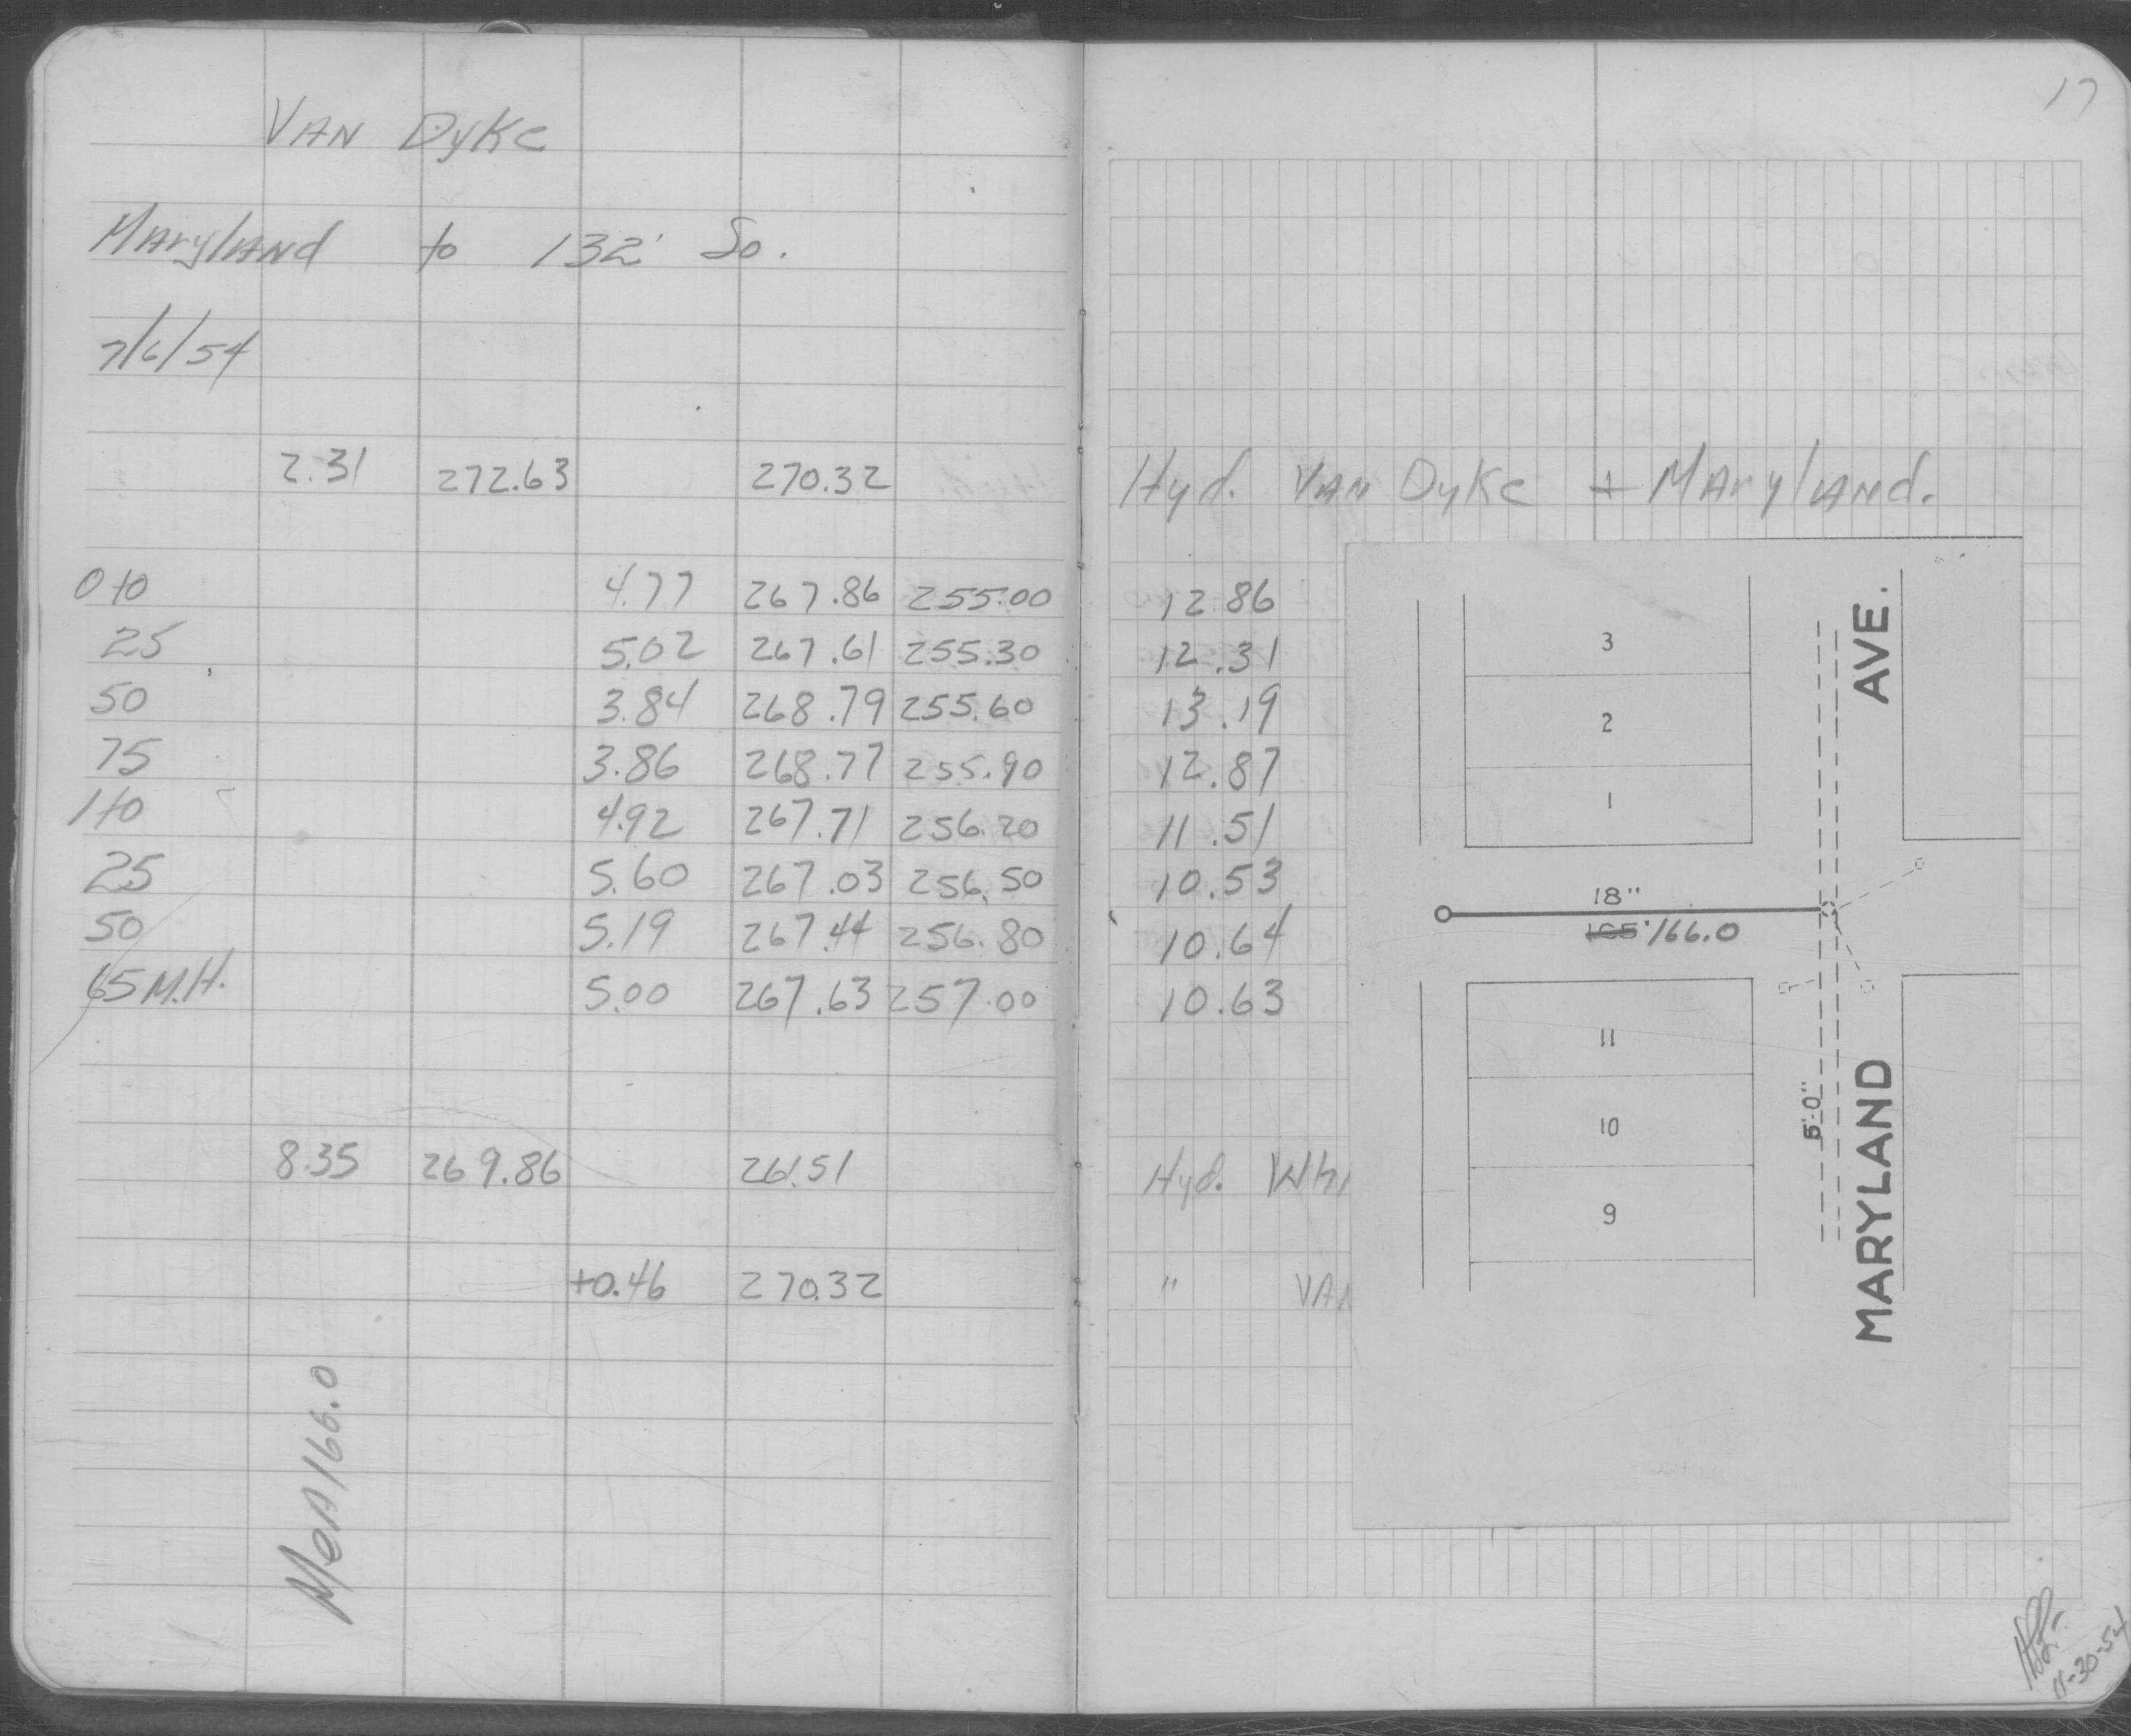 17
VAN DyKe
Maryland to 132' So.
7/6/54
2.31 272.63 270.32 Hyd. VAN DyKe + Maryland.
0+0 4.77 267.86 255.00 12.86
25 5.02 267.61 255.30 12.31
50 3.84 268.79 255.60 13.19
75 3.86 268.77 255.90 12.87
1+0 4.92 267.71 256.20 11.51
25 5.60 267.03 256.50 10.53
50 5.19 267.44 256.80 10.64
65 M.H. 5.00 267.63 257.00 10.63
8.35 269.86 261.51 Hyd. Whi
+0.46 270.32 " VAN
MeA 166.0
3
2
1
18"
165' 166.0
11
10
9
5'-0"
MARYLAND AVE.
11-30-54